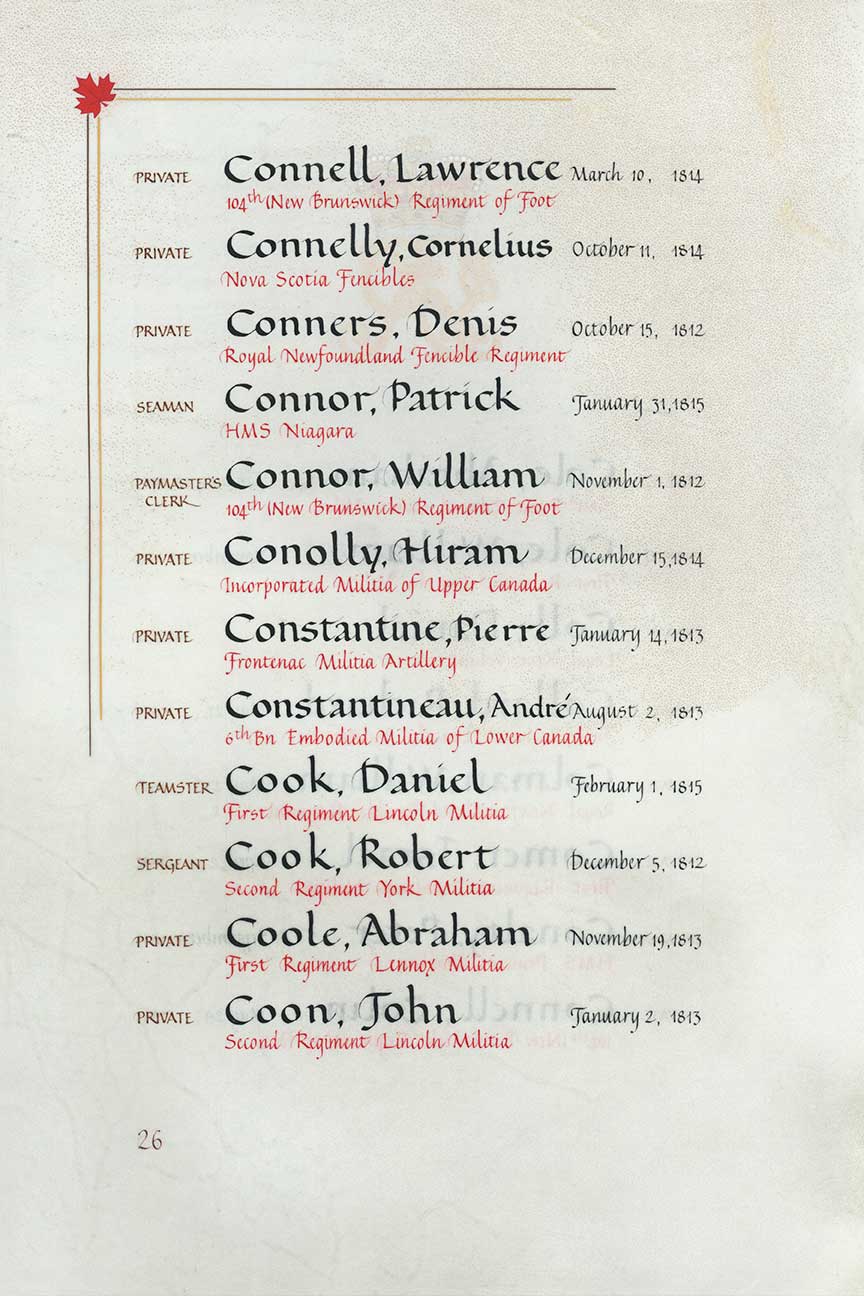 PRIVATE Connell, Lawrence March 10, 1814
104th (New Brunswick) Regiment of Foot
PRIVATE Connelly, Cornelius October 11, 1814
Nova Scotia Fencibles
PRIVATE Conners, Denis October 15, 1812
Royal Newfoundland Fencible Regiment
SEAMAN Connor, Patrick January 31, 1815
HMS Niagara
PAYMASTER'S Connor, William November 1, 1812
CLERK 104th (New Brunswick) Regiment of Foot
PRIVATE Conolly, Hiram December 15, 1814
Incorporated Militia of Upper Canada
PRIVATE Constantine, Pierre January 14, 1813
Frontenac Militia Artillery
PRIVATE Constantineau, André August 2, 1813
6th Bn Embodied Militia of Lower Canada
TEAMSTER Cook, Daniel February 1, 1815
First Regiment Lincoln Militia
SERGEANT Cook, Robert December 5, 1812
Second Regiment York Militia
PRIVATE Coole, Abraham November 19, 1813
First Regiment Lennox Militia
PRIVATE Coon, John January 2, 1813
Second Regiment Lincoln Militia
26